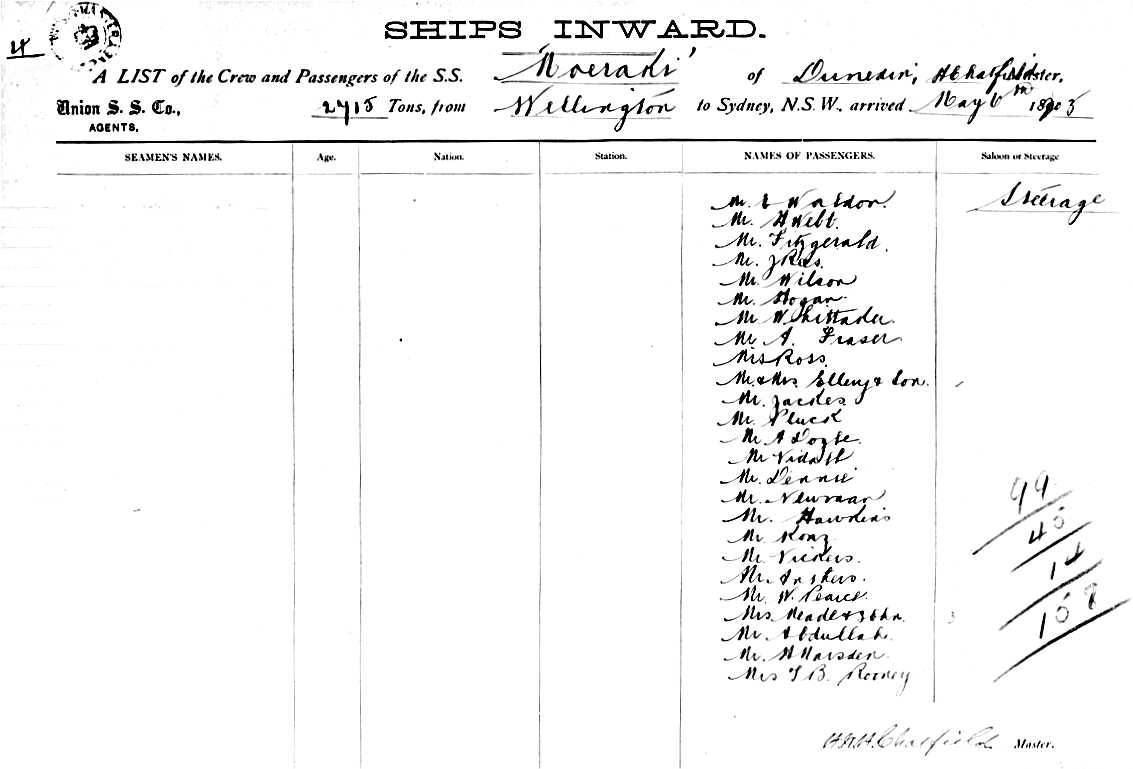 4
SHIPS INWARD.
A LIST of the Crew and Passengers of the S.S. "Moeraki" of Dunedin, H Chatfield Master,
Union S. S. Co., 2715 Tons, from Wellington to Sydney, N.S.W. arrived May 6th 1903
AGENTS.
SEAMEN'S NAMES. Age. Nation. Station. NAMES OF PASSENGERS. Saloon or Steerage
Mr. E Waldon. Steerage
Mr. H Webb.
Mr. Fitzgerald.
Mr. J Rees.
Mr. Wilson
Mr. Hogan.
Mr Whittaker
Mr A. Fraser
Mrs Ross.
Mr. & Mrs Ellery & Son.
Mr. Jackes.
Mr. Pluck
Mr A Doyle.
Mr Vidall
Mr. Dennie
Mr. Newman
Mr. Hawkins
Mr Konz
Mr. Vickers.
Mr.
Mr. W. Pearce.
Mrs. Meade & 3 Chn. 3
Mr. Abdullah.
Mr. H Marsden.
Mrs T B. Rooney
99
45
14
158
H.A.H. Chatfield Master.